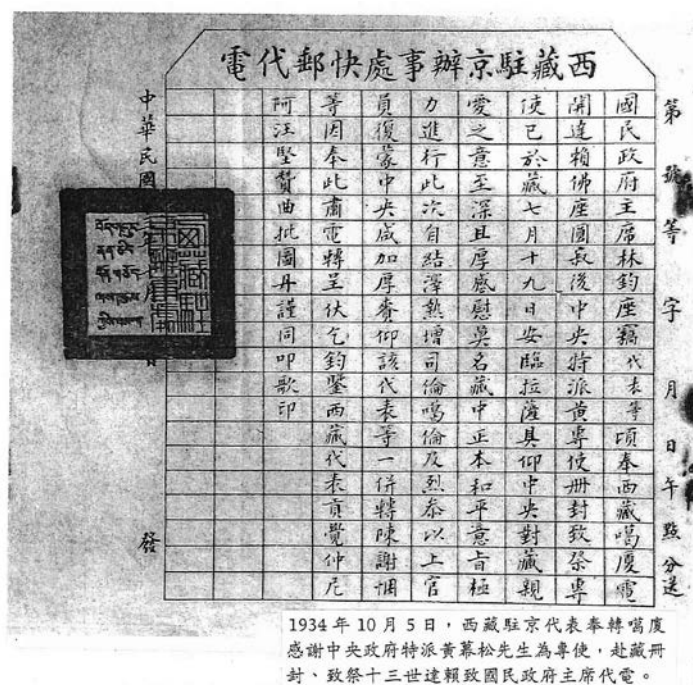 西藏駐京辦事處快郵代電
第號等字月日午點分送
國民政府主席林鈞座竊代表等頃奉西藏噶廈電
開達賴佛座圓寂後中央特派黃專使冊封致祭專
使已於藏七月十九日安臨拉薩具仰中央對藏親
愛之意至深且厚感慰莫名藏中正本和平意旨極
力進行此次自結澤熱增司倫噶倫及烈叅以上官
員復蒙中央咸加厚賚仰該代表等一併轉陳謝悃
等因奉此肅電轉呈伏乞鈞鑒西藏代表貢覺仲尼
阿汪堅贊曲批圖丹謹同叩歌印
中華民國年日發
1934年10月5日，西藏駐京代表奉轉噶廈
感謝中央政府特派黃慕松先生為專使，赴藏冊
封、致祭十三世達賴致國民政府主席代電。